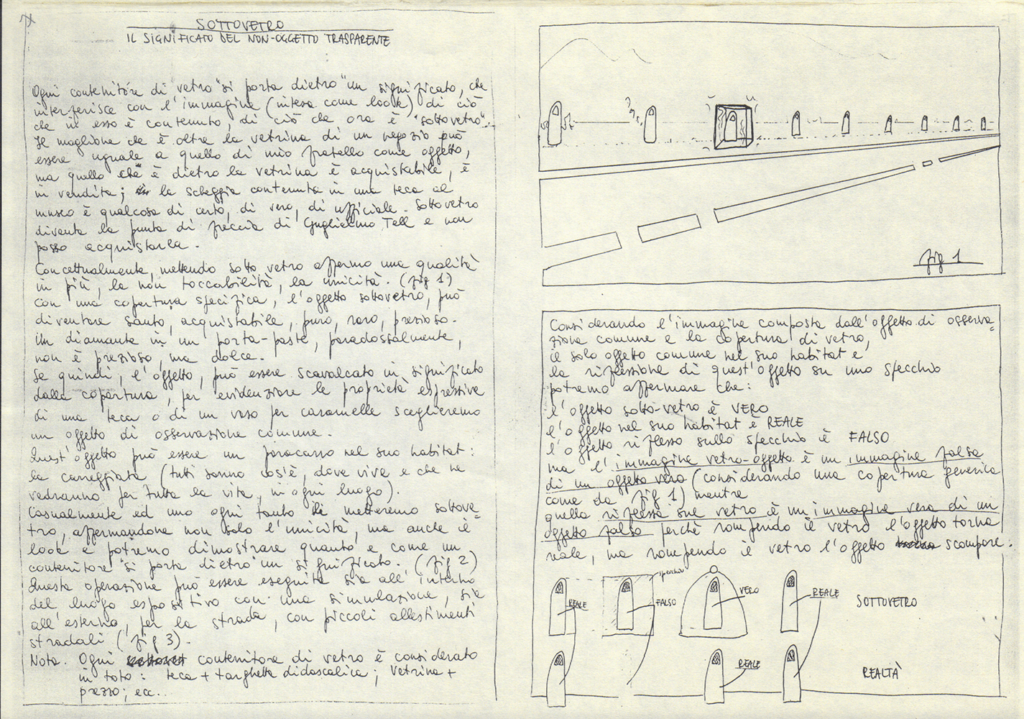 SOTTOVETRO
IL SIGNIFICATO DEL NON-OGGETTO TRASPARENTE
Ogni contenitore di vetro "si porta dietro" un significato, che
interferisce con l'immagine (intesa come look) di ciò
che in esso è contenuto, di ciò che ora è "sottovetro".
Se maglione che è oltre la vetrina di un negozio può
essere uguale a quello di mio fratello come oggetto,
ma quello che è dietro la vetrina è acquistabile, è
in vendita; la scheggia contenuta in una teca al
museo è qualcosa di certo, di vero, di ufficiale. Sottovetro
diventa la punta di freccia di Guglielmo Tell e non
posso acquistarla.
Concettualmente, mettendo sotto vetro affermo una qualità
in più, la non toccabilità, la unicità. (fig 1)
Con una copertura specifica, l'oggetto sottovetro, può
diventare santo, acquistabile, puro, raro, prezioso.
Un diamante in un porta-paste, paradossalmente,
non è prezioso, ma dolce.
Se quindi, l'oggetto, può essere scavalcato in significato
dalla copertura, per evidenziare le proprietà espressive
di una teca o di un vaso per caramelle sceglieremo
un oggetto di osservazione comune.
Quest'oggetto può essere un paracarro nel suo habitat:
la carreggiata (tutti sanno cos'è, dove vive e che ne
vedranno per tutta la vita, in ogni luogo).
Casualmente ed uno ogni tanto li metteremo sottove-
tro, affermandone non solo l'unicità, ma anche il
look e potremo dimostrare quanto e come un
contenitore "si porta dietro" un significato. (fig 2)
Questa operazione può essere eseguita sia all'interno
del luogo espositivo con una simulazione, sia
all'esterno, per la strada, con piccoli allestimenti
stradali (fig 3).
Nota. Ogni contenitore di vetro è considerato
in toto: teca + targhetta didascalica; vetrina +
prezzo; ecc..
fig 1
Considerando l'immagine composta dall'oggetto di osserva-
zione comune e la copertura di vetro,
il solo oggetto comune nel suo habitat e
la riflessione di quest'oggetto su uno specchio
potremo affermare che:
l'oggetto sotto-vetro è VERO
l'oggetto nel suo habitat è REALE
l'oggetto riflesso sullo specchio è FALSO
ma l'immagine vetro-oggetto è un immagine falsa
di un oggetto vero (considerando una copertura generica
come da fig 1) mentre
quella riflessa sul vetro è un immagine vera di un
oggetto falso perché rompendo il vetro l'oggetto torna
reale, ma rompendo il vetro l'oggetto scompare.
specchio
REALE
FALSO
VERO
REALE
SOTTOVETRO
REALE
REALTÀ